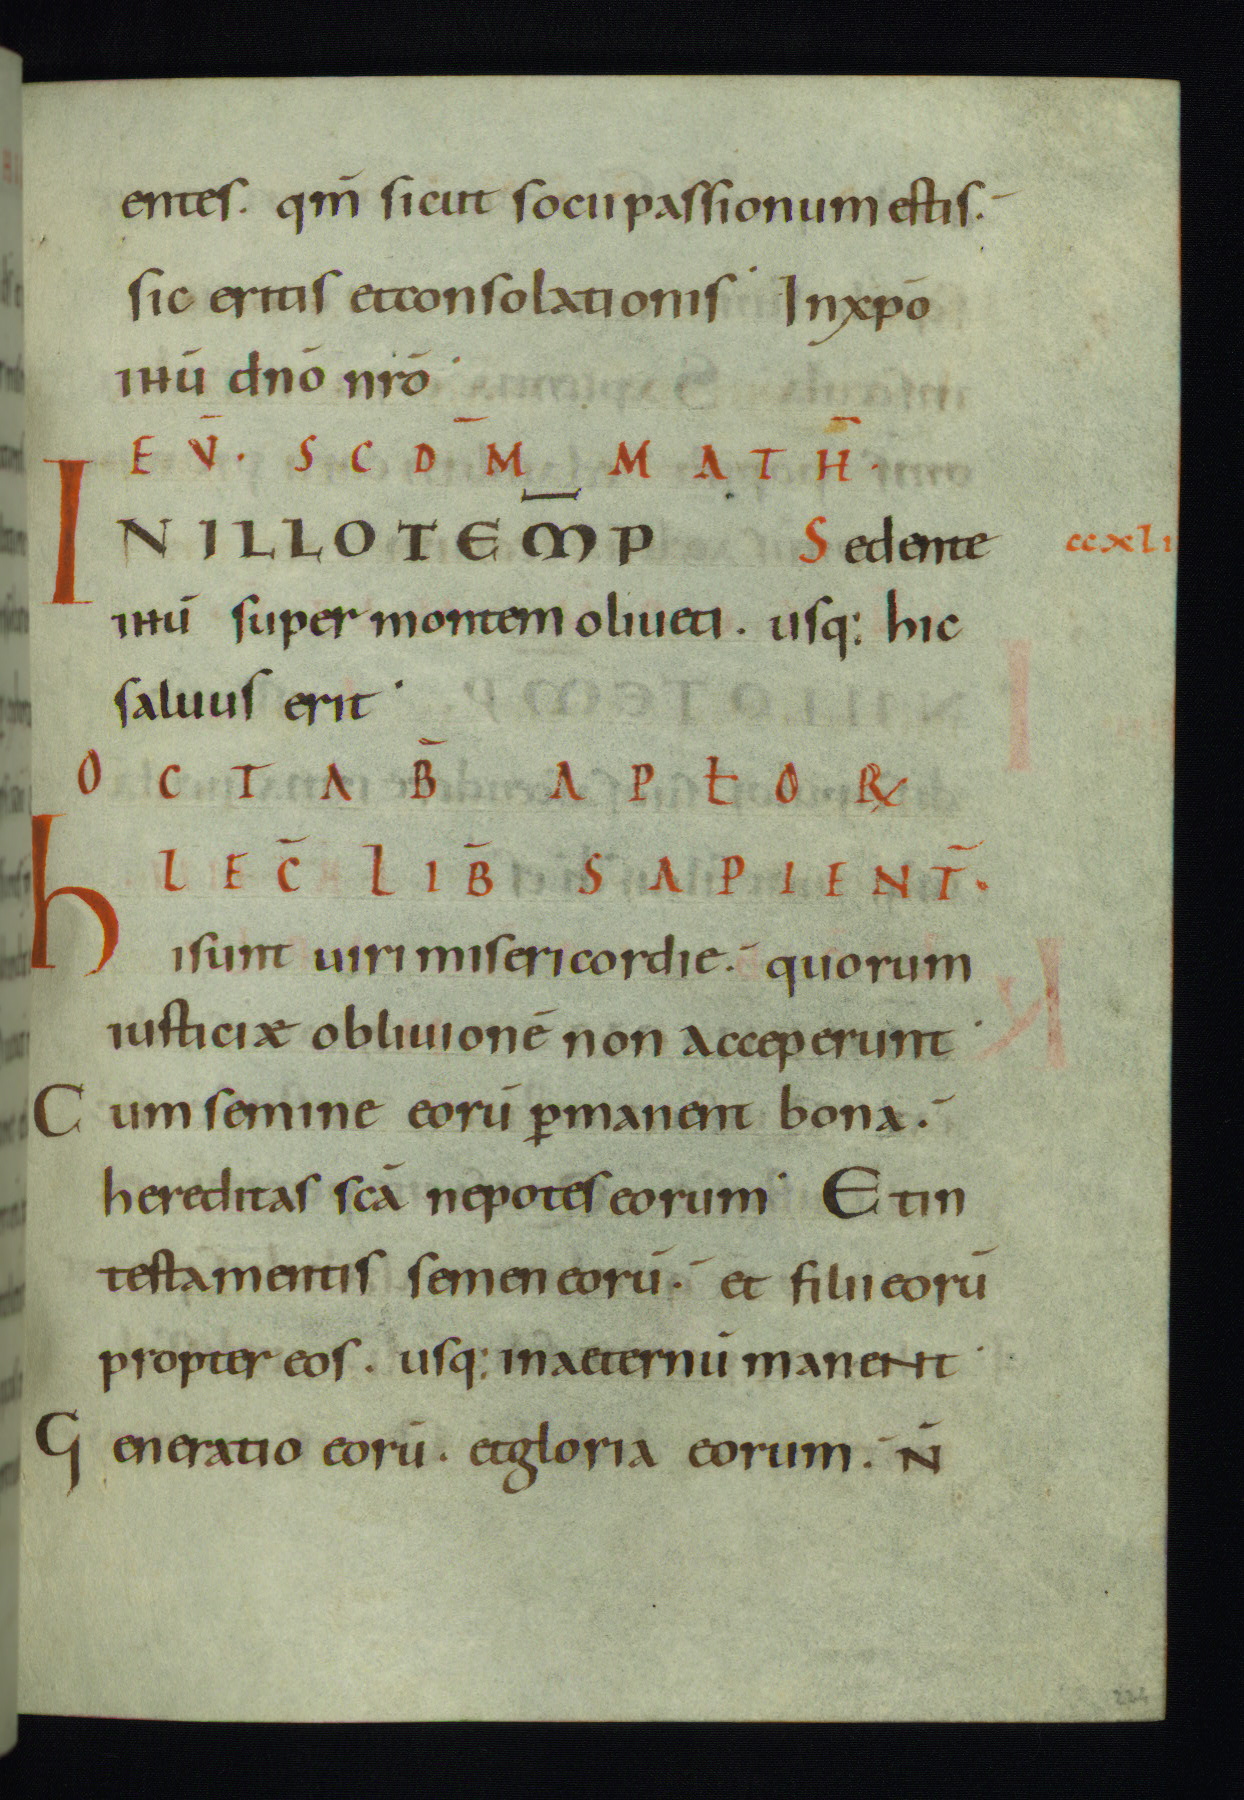 entes. qm̄ sicut socii passionum estis.
sic eritis et consolationis· In xpō
ihū dnō nrō·
EV̄. SCDM̄ MATH̄.
IN ILLO TEM̄P Sedente ccxli
ihū super montem oliueti. usq; hic
saluus erit·
OCTAB̄ APŁOR℞
LEC̄ LIB̄ SAPIENT̄.
hi sunt uiri misericordie. quorum
iusticiæ obliuionē non acceperunt·
Cum semine eorū ꝑmanent bona.
hereditas scā nepotes eorum· Et in
testamentis semen eorū. et filii eorū
propter eos. usq; in aeternū manent·
Generatio eorū. et gloria eorum. N̄
224